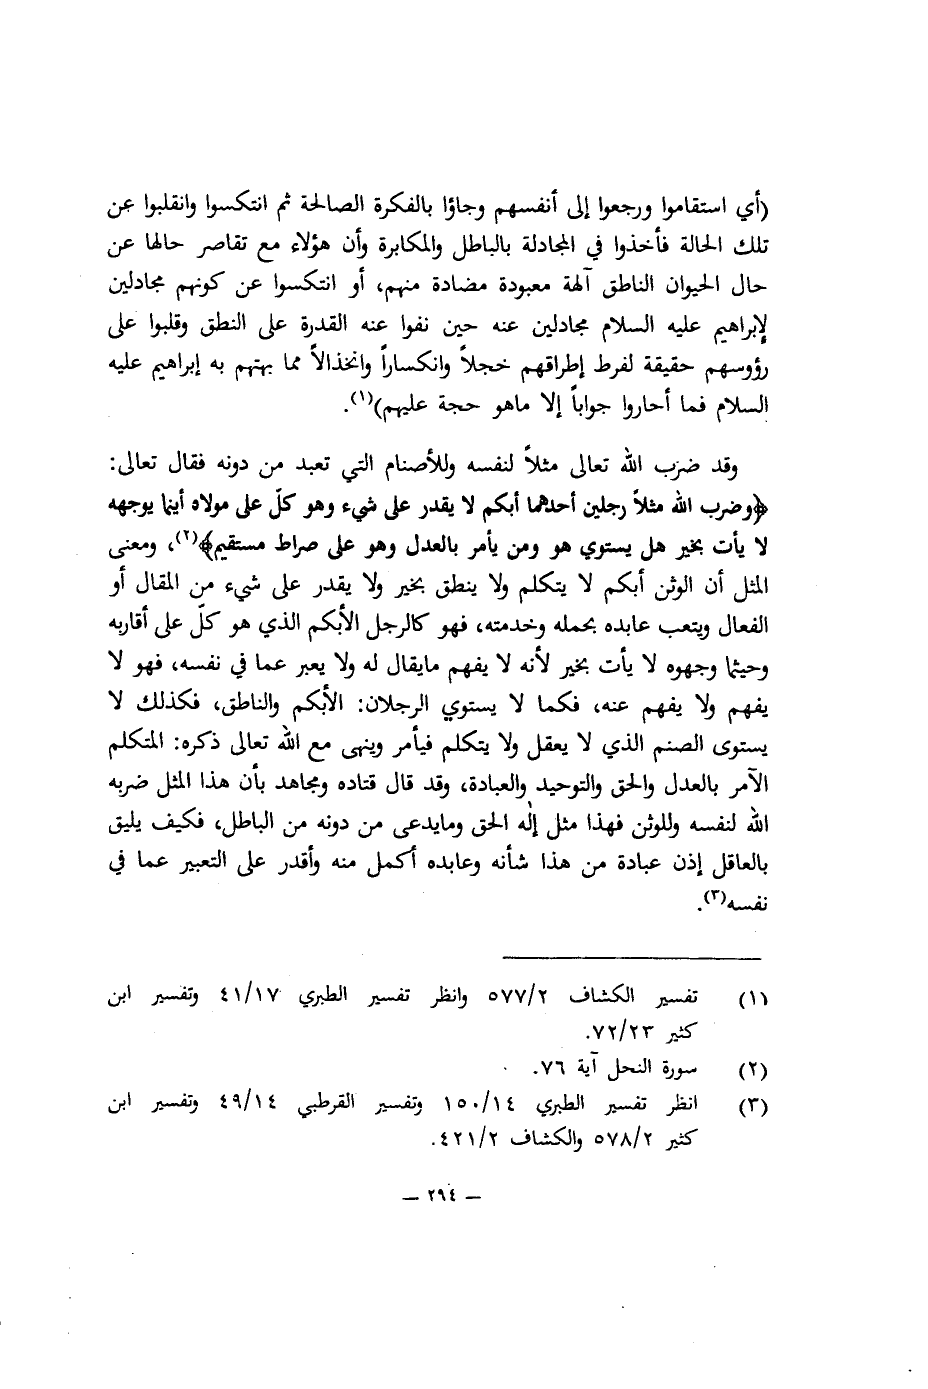 (أي استقاموا ورجعوا إلى أنفسهم وجاؤا بالفكرة الصالحة ثم انتكسوا وانقلبوا عن
تلك الحالة فأخذوا في المجادلة بالباطل والمكابرة وأن هؤلاء مع تقاصر حالها عن
حال الحيوان الناطق آلهة معبودة مضادة منهم، أو انتكسوا عن كونهم مجادلين
لإبراهيم عليه السلام مجادلين عنه حين نفوا عنه القدرة على النطق وقلبوا على
رؤوسهم حقيقة لفرط إطراقهم خجلاً وانكساراً وانخذالاً مما بهتهم به إبراهيم عليه
السلام فما أحاروا جواباً إلا ماهو حجة عليهم)(١).
وقد ضرب الله تعالى مثلاً لنفسه وللأصنام التي تعبد من دونه فقال تعالى:
﴿وضرب الله مثلاً رجلين أحدهما أبكم لا يقدر على شيء وهو كلّ على مولاه أينما يوجهه
لا يأت بخير هل يستوي هو ومن يأمر بالعدل وهو على صراط مستقيم﴾(٢)، ومعنى
المثل أن الوثن أبكم لا يتكلم ولا ينطق بخير ولا يقدر على شيء من المقال أو
الفعال ويتعب عابده بحمله وخدمته، فهو كالرجل الأبكم الذي هو كلّ على أقاربه
وحيثما وجهوه لا يأت بخير لأنه لا يفهم مايقال له ولا يعبر عما في نفسه، فهو لا
يفهم ولا يفهم عنه، فكما لا يستوي الرجلان: الأبكم والناطق، فكذلك لا
يستوى الصنم الذي لا يعقل ولا يتكلم فيأمر وينهى مع الله تعالى ذكره: المتكلم
الآمر بالعدل والحق والتوحيد والعبادة، وقد قال قتاده ومجاهد بأن هذا المثل ضربه
الله لنفسه وللوثن فهذا مثل إلٰه الحق ومايدعى من دونه من الباطل، فكيف يليق
بالعاقل إذن عبادة من هذا شأنه وعابده أكمل منه وأقدر على التعبير عما في
نفسه(٣).
(١) تفسير الكشاف ٥٧٧/٢ وانظر تفسير الطبري ٤١/١٧ وتفسير ابن
كثير ٧٢/٢٣.
(٢) سورة النحل آية ٧٦.
(٣) انظر تفسير الطبري ١٥٠/١٤ وتفسير القرطبي ٤٩/١٤ وتفسير ابن
كثير ٥٧٨/٢ والكشاف ٤٢١/٢.
— ٢٩٤ —